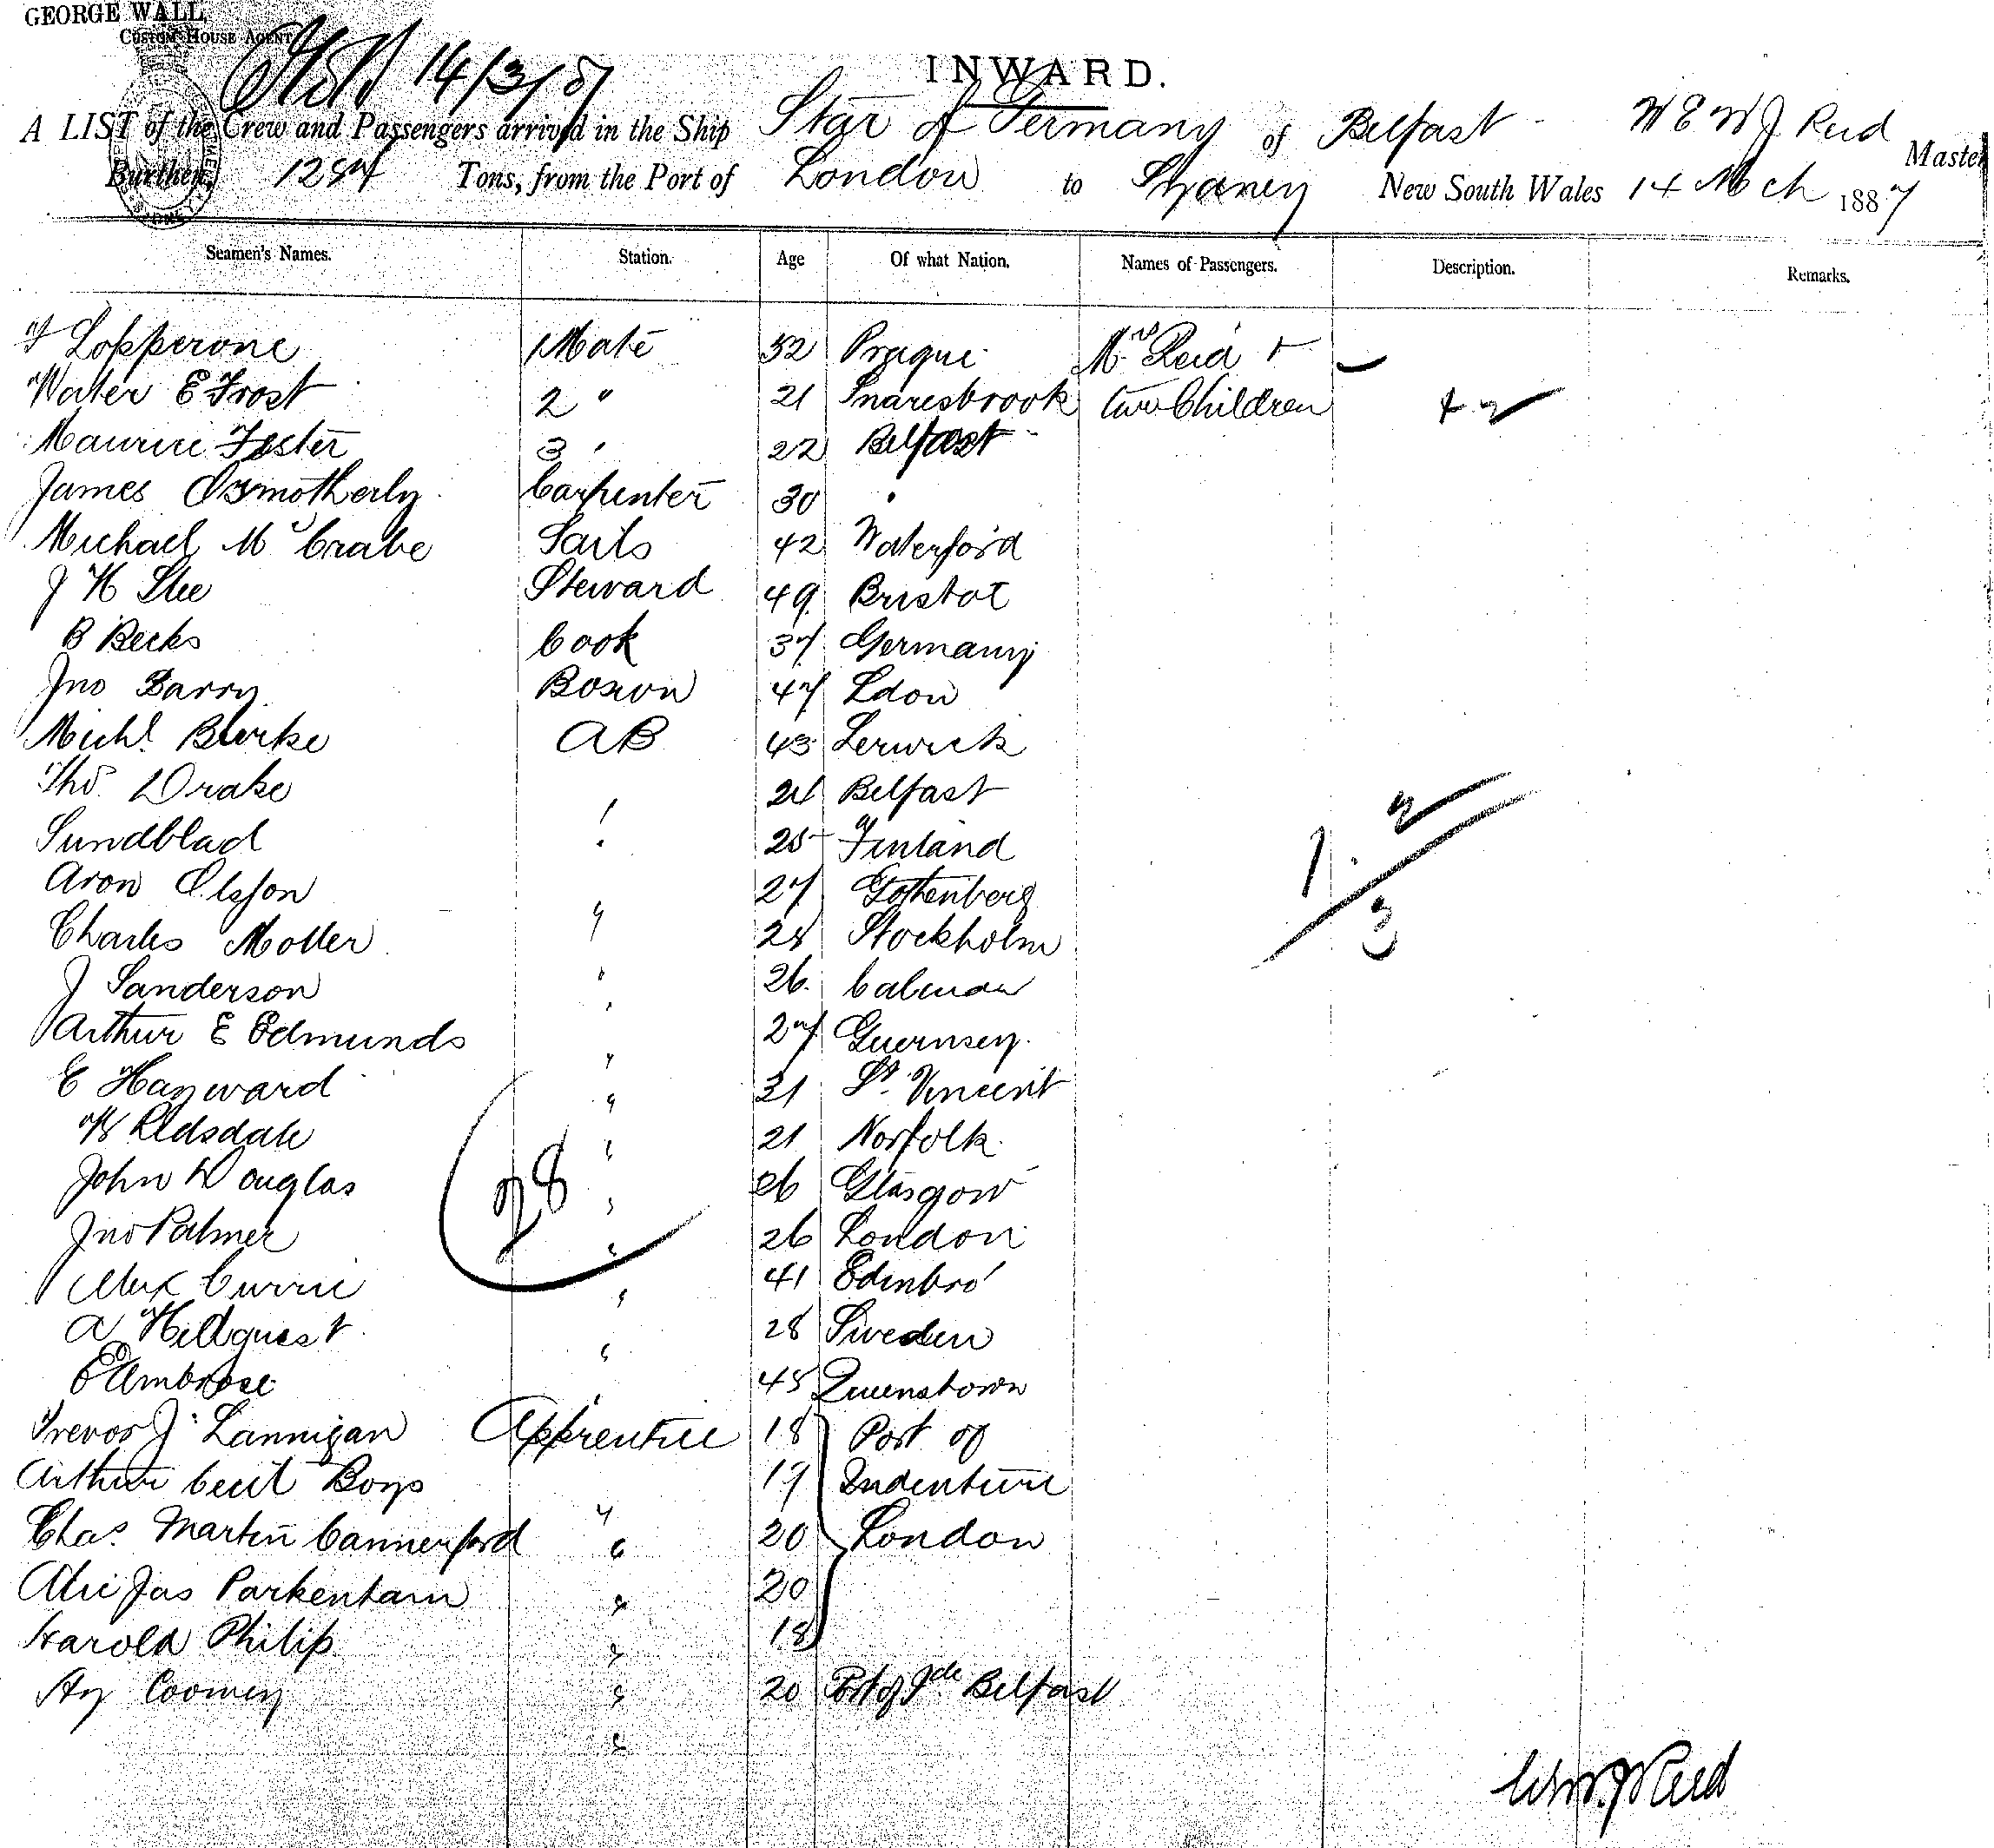 GEORGE WALL
CUSTOM HOUSE AGENT
14/3/87
INWARD.
A LIST of the Crew and Passengers arrived in the Ship Star of Germany of Belfast W E W J Reid Master
Burthen, 1284 Tons, from the Port of London to Sydney New South Wales 14 Mch 1887
Seamen's Names. Station. Age Of what Nation. Names of Passengers. Description. Remarks.
Lopperone Mate 32 Prague Mrs Reid +
Walter E Frost 2 " 21 Snaresbrook two Children + 2
Maurice Foster 3 " 22 Belfast
James Osmotherly Carpenter 30 "
Michael McCrabe Sails 42 Waterford
J H Slee Steward 49 Bristol
B Becks Cook 37 Germany
Jno Barry Bosun 47 Ldon
Michl Burke AB 43 Lerwick
Thos Drake " 21 Belfast
Sundblad " 25 Finland
Aron Olsson " 27 Gothenberg
Charles Moller " 28 Stockholm
J Sanderson " 26 Calmar
Arthur E Edmunds " 27 Guernsey
E Hayward " 31 St Vincent
Ridsdale " 21 Norfolk
John Douglas " 26 Glasgow
Jno Palmer " 26 London
Alex Currie " 41 Edinbro'
A Hillquest " 28 Sweden
E Ambrose " 45 Queenstown
Trevor J Lannigan Apprentice 18 Port of
Arthur Cecil Boys " 19 Indenture
Chas. Martin Cannerford " 20 London
Jas Parkenham " 20
Harold Philip " 18
Hy Coomey " 20 Port of Ide Belfast
28
1. 2
3
Wm J Reid